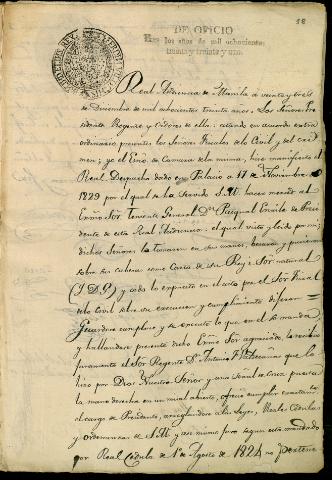 58
DE OFICIO
los años de mil ochocientos
treinta y treinta y uno.
Real Audiencia de Manila a veinte y tres
de Diciembre de mil ochocientos treinta años. Los Señores Pre
sidente Regente y Oidores de ella: estando en acuerdo extra
ordinario presentes los Señores Fiscales de lo Civil y del cri
men; yo el Esno. de Camara de la misma, hice manifiesto el
Real Despacho dado en Palacio a 17 de Noviembre de
1829 por el qual se ha servido S.M. hacer merced al
Exmo Sor Teniente General Dn Pasqual Enrile de Presi
dente de esta Real Audiencia: el qual visto y leido por mi;
dichos Señores la tomaron en sus manos, besaron y pusieron
sobre sus cabezas como Carta de su Rey y Sor natural
(Q.D.G.) y todo lo expuesto en el acto por el Sor Fiscal
de lo Civil sobre su execucion y cumplimiento dijeron=
Guardese cumplase y se execute lo que en el se manda
y hallandose presente dicho Exmo Sor agraciado, le recibio
juramento el Sor Regente Dn Antonio que lo
hizo por Dios Nuestro Señor y una señal de Cruz puesta
la mano derecha en un misal abierto, ofrecio cumplir exactamte
el cargo de Presidente, arreglandose a las Leyes, Reales Cedulas
y ordenanzas de S.M. y asi mismo juro segun esta mandado
por Real Cedula de 1º de Agosto de 1824 no